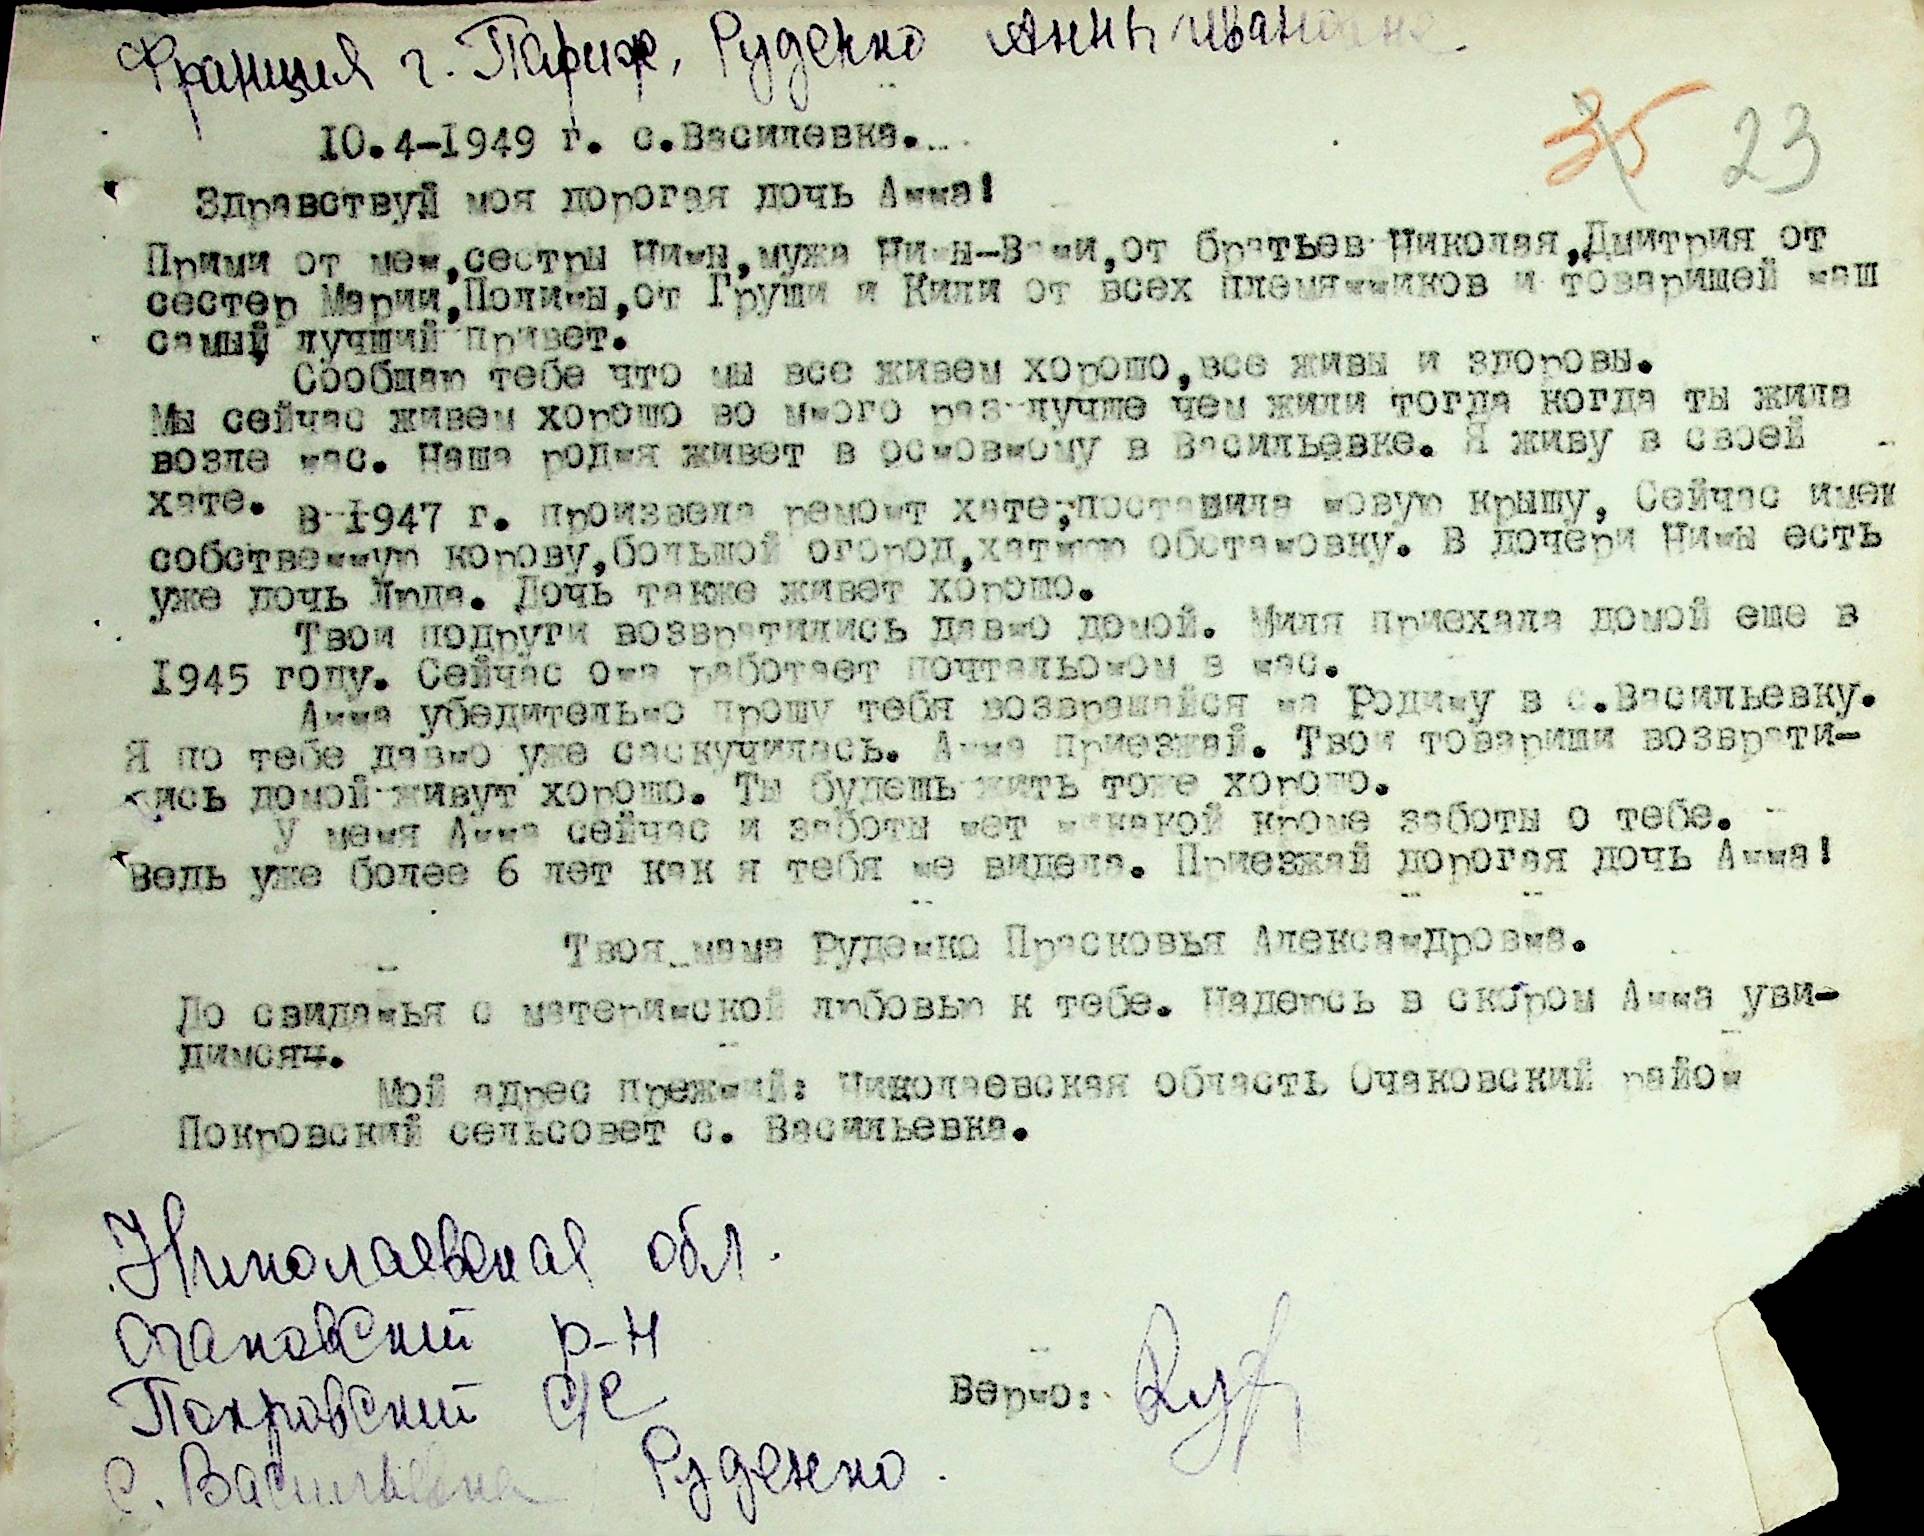 Франция г. Париж, Руденко Анны Ивановне
10.4-1949 г. с.Василевка.
35 23
Здравствуй моя дорогая дочь Анна!
Прими от мен,сестры Нины,мужа Нины-Вани,от братьев Николая,Дмитрия от
сестер Марии,Полины,от Груши и Кили от всех племянников и товарищей наш
самый лучший привет.
Сообщаю тебе что мы все живем хорошо,все живы и здоровы.
Мы сейчас живем хорошо во много раз лучше чем жили тогда когда ты жила
возле нас. Наша родня живет в основному в Васильевке. Я живу в своей
хате. в 1947 г. произвела ремонт хате,поставила новую крышу, Сейчас имек
собственную корову,большой огород,хатнюю обстановку. В дочери Нины есть
уже дочь Люда. Дочь также живет хорошо.
Твои подруги возвратились давно домой. Миля приехала домой еще в
1945 году. Сейчас она работает почтальоном в нас.
Анна убедительно прошу тебя возвращайся на Родину в с.Васильевку.
Я по тебе давно уже саскучилась. Анна приезжай. Твои товарищи возврати-
лись домой живут хорошо. Ты будешь жить тоже хорошо.
У меня Анна сейчас и заботы нет никакой кроме заботы о тебе.
Ведь уже более 6 лет как я тебя не видела. Приезжай дорогая дочь Анна!
Твоя мама Руденко Прасковья Александровна.
До свиданья с материнской любовью к тебе. Надеюсь в скором Анна уви-
димся.
Мой адрес прежний: Николаевская область Очаковский район
Покровский сельсовет с. Васильевка.
Николаевская обл.
Очаковский р-н
Покровский с/с
Верно:
с. Васильевка Руденко.